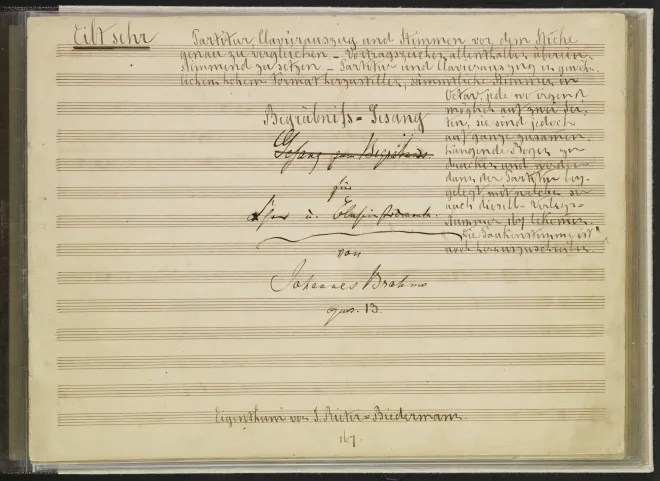 Eilt sehr
Partitur, Clavierauszug und Stimmen vor dem Stiche
genau zu vergleichen – Vortragszeichen allenthalben überein-
stimmend zu setzen – Partitur und Clavierauszug in gewöhn-
lichem hohem Format herzustellen, sämmtliche Stimmen in
Octav, jede wo irgend
möglich auf zwei Sei-
ten, sie sind jedoch
auf ganze zusammen-
hängende Bogen zu
drucken und werden
dann der Partitur bei-
gelegt mit welcher sie
auch dieselbe Verlags-
nummer 167 bekommen.
Die Paukenstimme ist
noch herauszuschreiben.
Begräbniss=Gesang
Gesang zum Begräbniss.
für
Chor u. Blasinstrumente.
von
Johannes Brahms
opus. 13.
Eigenthum von J. Rieter=Biedermann.
167.